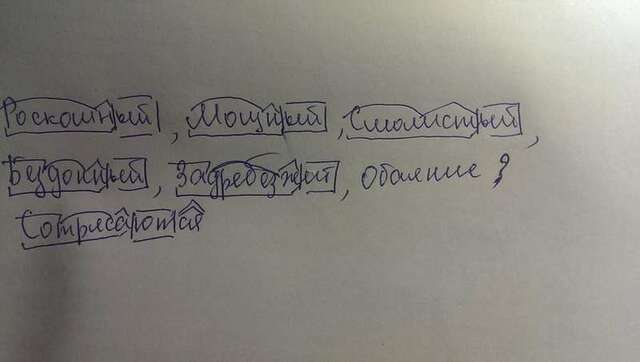 Роскошный, Мощный, Смолистый,
Бездонный, Задребезжит, обаяние?
Сотрясаются